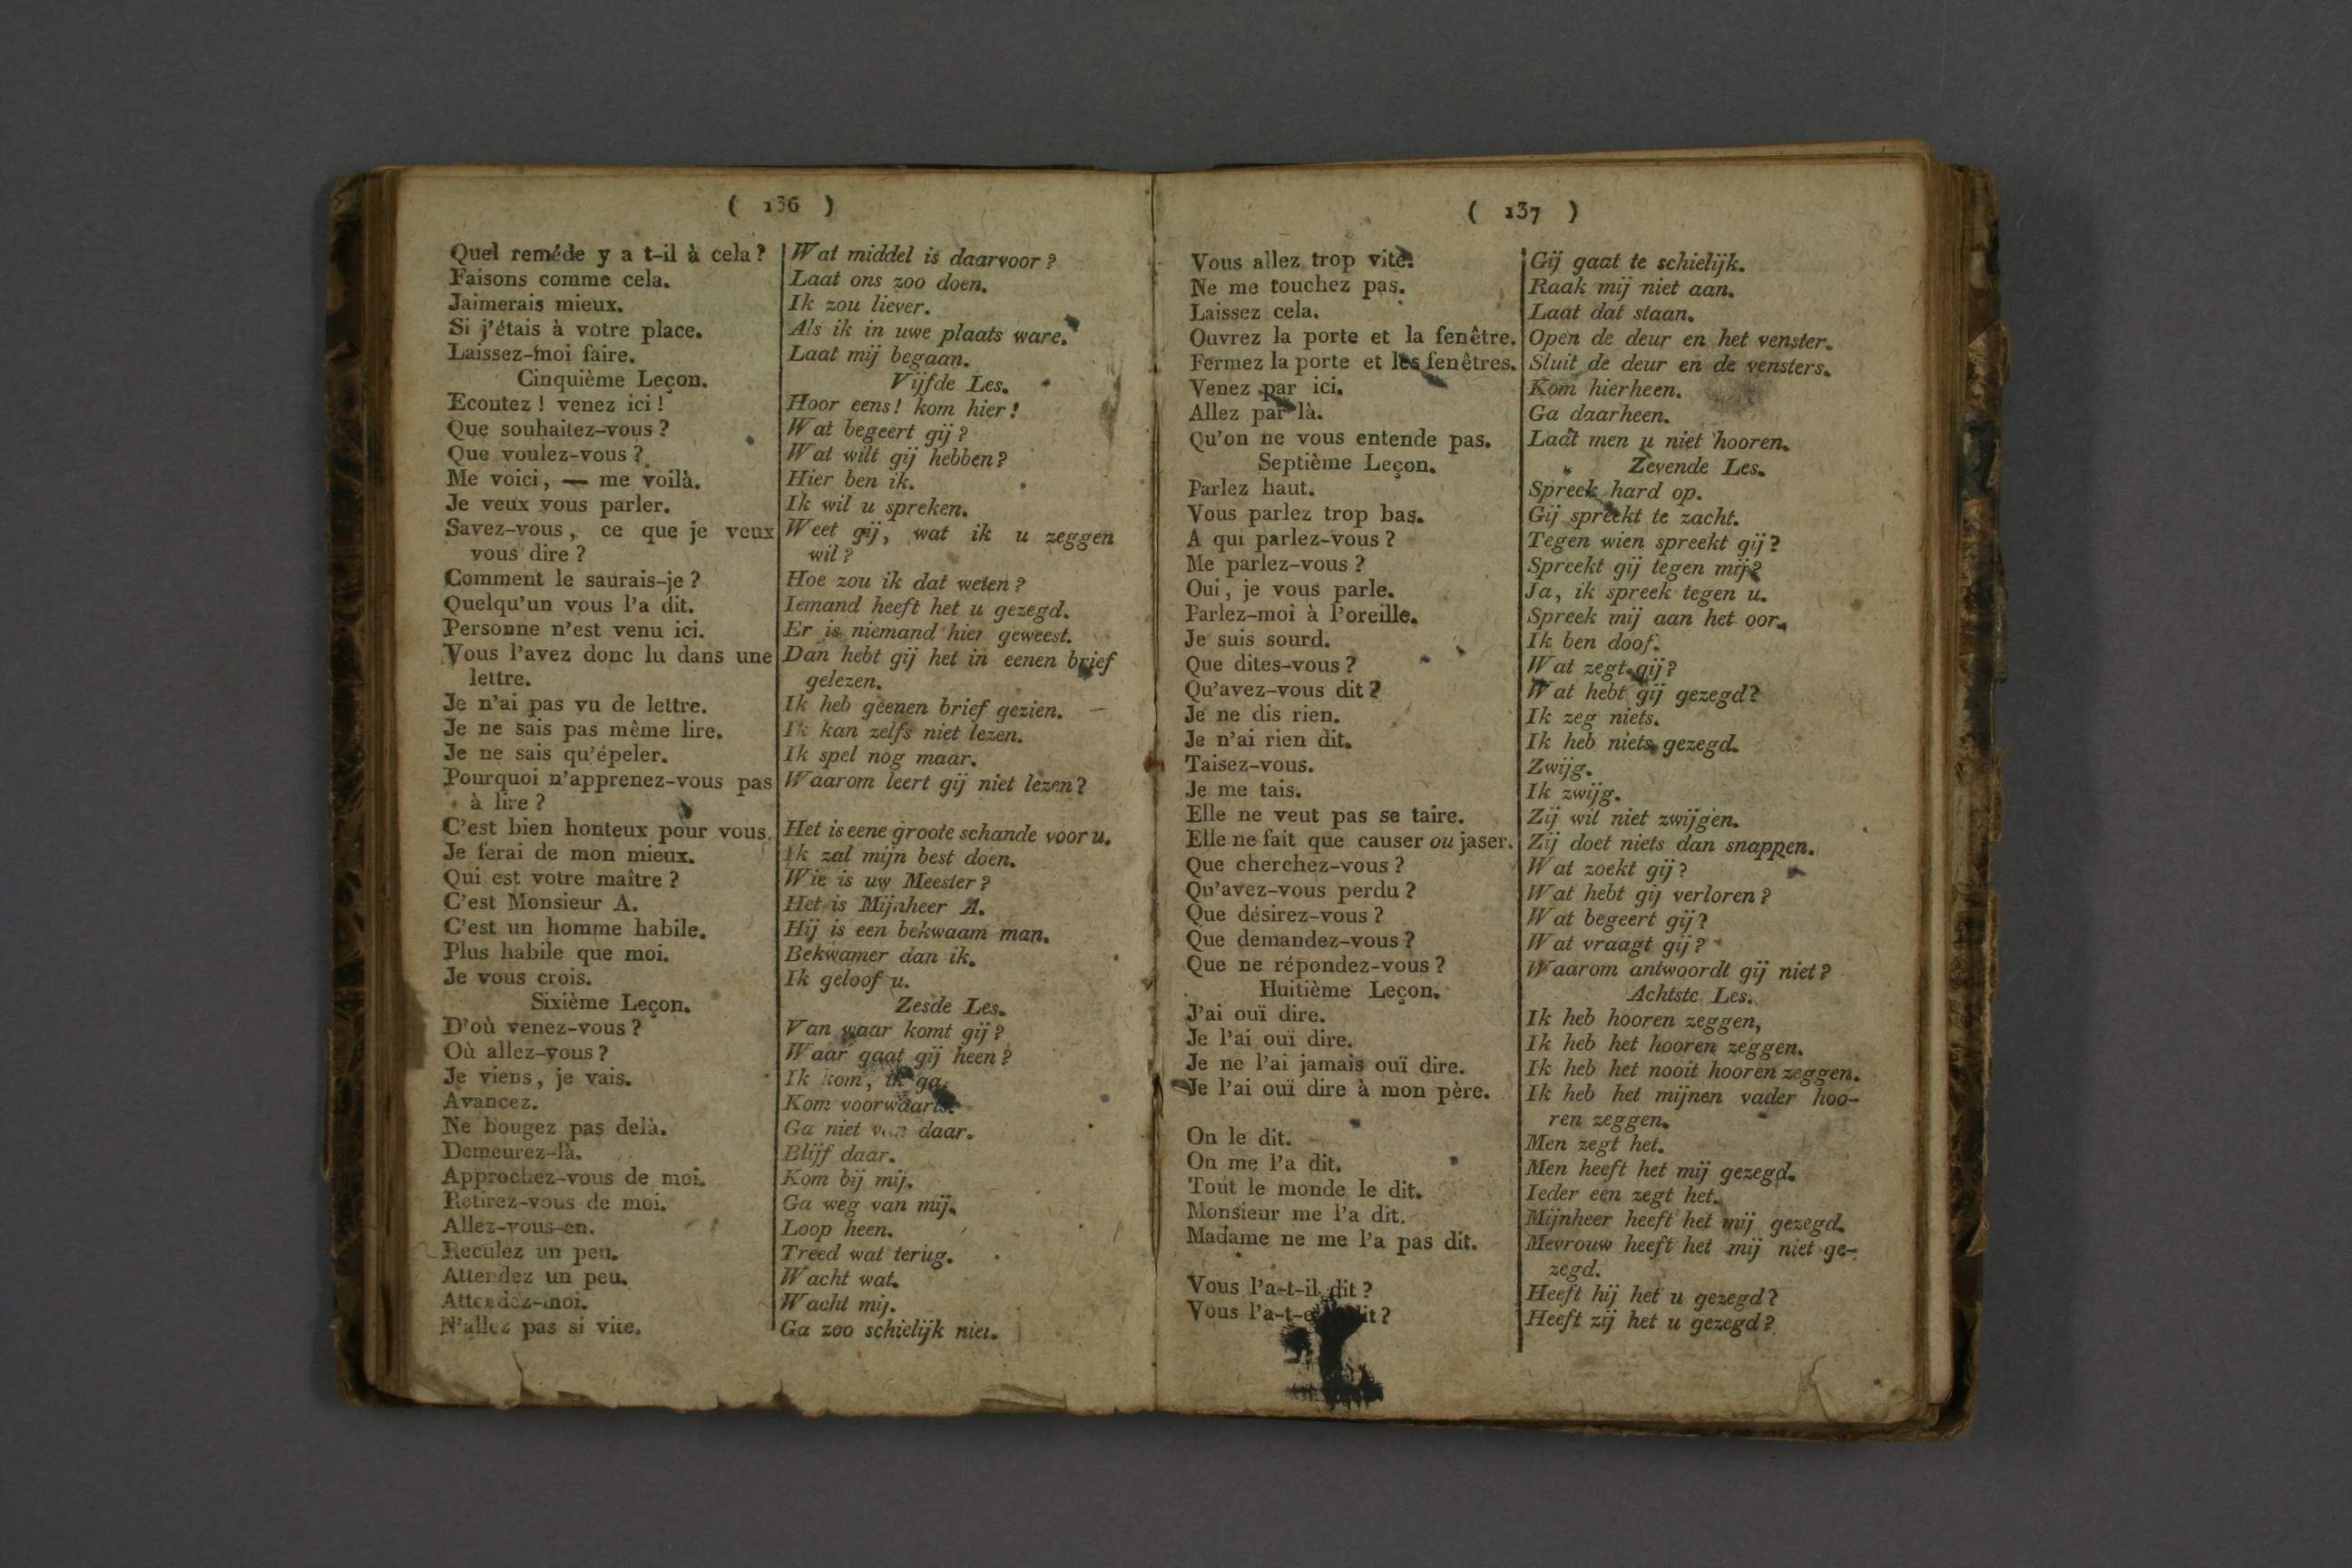 ( 136 )
Quel reméde y a t-il à cela?
Faisons comme cela.
Jaimerais mieux.
Si j'étais à votre place.
Laissez-moi faire.
Cinquième Leçon.
Ecoutez ! venez ici !
Que souhaitez-vous ?
Que voulez-vous ?
Me voici, — me voilà.
Je veux vous parler.
Savez-vous, ce que je veux
vous dire ?
Comment le saurais-je ?
Quelqu'un vous l'a dit.
Personne n'est venu ici.
Vous l'avez donc lu dans une
lettre.
Je n'ai pas vu de lettre.
Je ne sais pas même lire.
Je ne sais qu'épeler.
Pourquoi n'apprenez-vous pas
à lire ?
C'est bien honteux pour vous.
Je ferai de mon mieux.
Qui est votre maître ?
C'est Monsieur A.
C'est un homme habile.
Plus habile que moi.
Je vous crois.
Sixième Leçon.
D'où venez-vous ?
Où allez-vous ?
Je viens, je vais.
Avancez.
Ne bougez pas delà.
Demeurez-là.
Approchez-vous de moi.
Retirez-vous de moi.
Allez-vous-en.
Reculez un peu.
Attendez un peu.
Attendez-moi.
N'allez pas si vite.
Wat middel is daarvoor ?
Laat ons zoo doen.
Ik zou liever.
Als ik in uwe plaats ware.
Laat mij begaan.
Vijfde Les.
Hoor eens! kom hier!
Wat begeert gij ?
Wat wilt gij hebben?
Hier ben ik.
Ik wil u spreken.
Weet gij, wat ik u zeggen
wil ?
Hoe zou ik dat weten ?
Iemand heeft het u gezegd.
Er is niemand hier geweest.
Dan hebt gij het in eenen brief
gelezen.
Ik heb geenen brief gezien.
Ik kan zelfs niet lezen.
Ik spel nog maar.
Waarom leert gij niet lezen?
Het is eene groote schande voor u.
Ik zal mijn best doen.
Wie is uw Meester ?
Het is Mijnheer A.
Hij is een bekwaam man.
Bekwamer dan ik.
Ik geloof u.
Zesde Les.
Van waar komt gij ?
Waar gaat gij heen ?
Ik kom, ik ga.
Kom voorwaarts.
Ga niet van daar.
Blijf daar.
Kom bij mij.
Ga weg van mij.
Loop heen.
Treed wat terug.
Wacht wat.
Wacht mij.
Ga zoo schielijk niet.
( 137 )
Vous allez trop vite.
Ne me touchez pas.
Laissez cela.
Ouvrez la porte et la fenêtre.
Fermez la porte et les fenêtres.
Venez par ici.
Allez par là.
Qu'on ne vous entende pas.
Septième Leçon.
Parlez haut.
Vous parlez trop bas.
A qui parlez-vous ?
Me parlez-vous ?
Oui, je vous parle.
Parlez-moi à l'oreille.
Je suis sourd.
Que dites-vous ?
Qu'avez-vous dit ?
Je ne dis rien.
Je n'ai rien dit.
Taisez-vous.
Je me tais.
Elle ne veut pas se taire.
Elle ne fait que causer ou jaser.
Que cherchez-vous ?
Qu'avez-vous perdu ?
Que désirez-vous ?
Que demandez-vous ?
Que ne répondez-vous ?
Huitième Leçon.
J'ai ouï dire.
Je l'ai ouï dire.
Je ne l'ai jamais ouï dire.
Je l'ai ouï dire à mon père.
On le dit.
On me l'a dit.
Tout le monde le dit.
Monsieur me l'a dit.
Madame ne me l'a pas dit.
Vous l'a-t-il dit ?
Vous
Gij gaat te schielijk.
Raak mij niet aan.
Laat dat staan.
Open de deur en het venster.
Sluit de deur en de vensters.
Kom hierheen.
Ga daarheen.
Laat men u niet hooren.
Zevende Les.
Spreek hard op.
Gij spreekt te zacht.
Tegen wien spreekt gij ?
Spreekt gij tegen mij ?
Ja, ik spreek tegen u.
Spreek mij aan het oor.
Ik ben doof.
Wat zegt gij ?
Wat hebt gij gezegd?
Ik zeg niets.
Ik heb niets gezegd.
Zwijg.
Ik zwijg.
Zij wil niet zwijgen.
Zij doet niets dan snappen.
Wat zoekt gij ?
Wat hebt gij verloren ?
Wat begeert gij ?
Wat vraagt gij ?
Waarom antwoordt gij niet ?
Achtste Les.
Ik heb hooren zeggen,
Ik heb het hooren zeggen.
Ik heb het nooit hooren zeggen.
Ik heb het mijnen vader hoo-
ren zeggen.
Men zegt het.
Men heeft het mij gezegd.
Ieder een zegt het.
Mijnheer heeft het mij gezegd.
Mevrouw heeft het mij niet ge-
zegd.
Heeft hij het u gezegd ?
Heeft zij het u gezegd ?